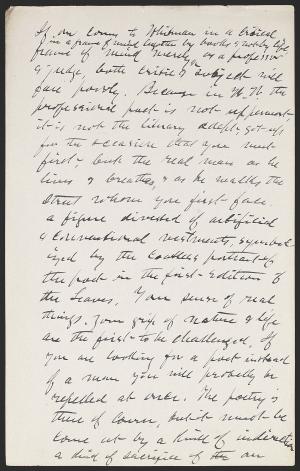 If one comes to Whitman in a critical
in a frame of mind begotten by books & not by life
frame of mind merely, or as a professor
& judge, both critic & subject will
fare poorly. Because in W. W. the
professional poet is not uppermost
it is not the library adept got-up
for the occasion that you meet
first, but the real man as he
lives & breathes, & as he walks the
street whom you first face.
a figure divested of artificial
& conventional vestments, symbol
ized by the coatless portrait of
the poet in the first edition of
the Leaves. Your sense of real
things, your grip of nature & life
are the first to be challenged. If
you are looking for a poet instead
of a man you will probably be
repelled at once. The poetry is
there of course, but it must be
come at by a kind of indirection
a kind of sacrifice of the an